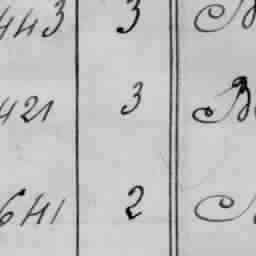 443 3
421 3
641 2